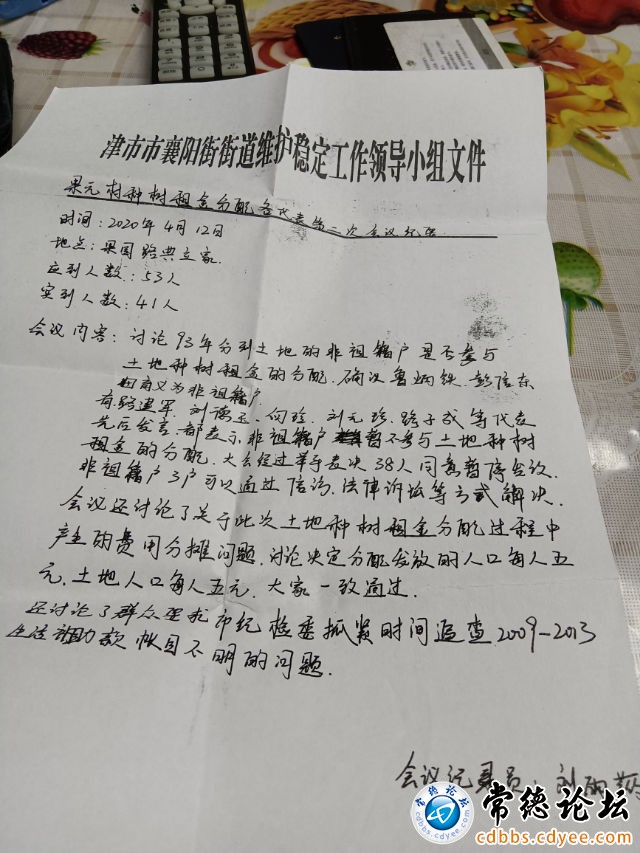 津市市襄阳街街道维护稳定工作领导小组文件
果元村种树租金分配各代表第二次会议纪
时间:2020年4月12日
地点:果园路典立家.
应到人数:53人
实到人数:41人
会议内容:讨论93年分到土地的非祖籍户是否参与
土地种树租金的分配.确议鲁炳铁、彭传东
为非祖籍户
有路建军.刘德玉.向珍.刘元珍.路子成等代表
先后发言.都表示非祖籍户暂不参与土地种树
租金的分配.大会经过举手表决38人同意暂停发放.
非祖籍户3户可以通过信访.法律诉讼等方式解决.
会议还讨论了关于此次土地种树租金分配过程中
产生的费用分摊问题.讨论决定分配发放的人口每人五
元.土地人口每人五元.大家一致通过.
还讨论了群众要求市纪检委抓紧时间追查2009-2013
补助款帐目不明的问题.
会议记录员:刘
常德论坛
cdbbs.cdyee.com